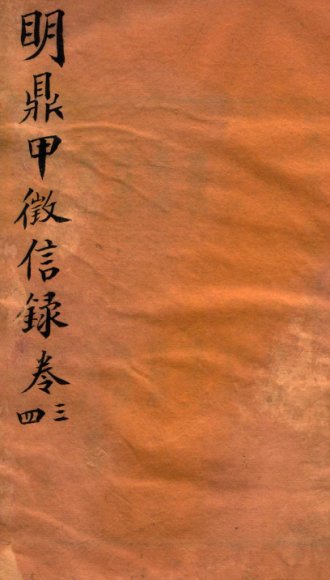 明鼎甲徵信録卷三四